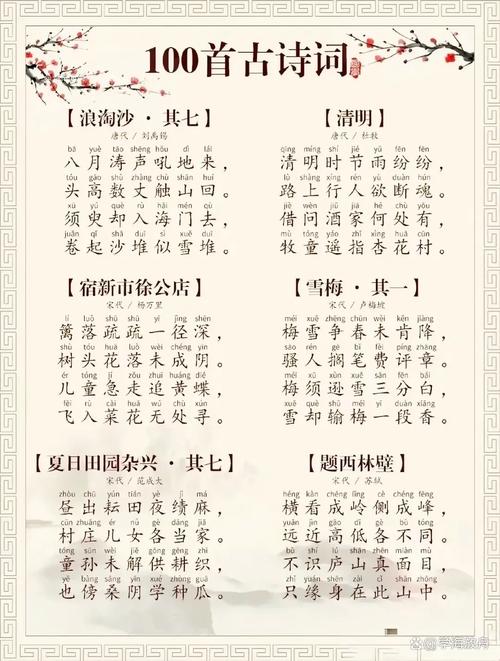 100首古诗词
【浪淘沙·其七】
唐代 / 刘禹锡
bā yuè tāo shēng hǒu dì lái
八月涛声吼地来，
tóu gāo shù zhàng chù shān huí
头高数丈触山回。
xū yú què rù hǎi mén qù
须臾却入海门去，
juǎn qǐ shā duī sì xuě duī
卷起沙堆似雪堆。
【清明】
唐代 / 杜牧
qīng míng shí jié yǔ fēn fēn
清明时节雨纷纷，
lù shàng xíng rén yù duàn hún
路上行人欲断魂。
jiè wèn jiǔ jiā hé chù yǒu
借问酒家何处有，
mù tóng yáo zhǐ xìng huā cūn
牧童遥指杏花村。
【宿新市徐公店】
宋代 / 杨万里
lí luò shū shū yī jìng shēn
篱落疏疏一径深，
shù tóu huā luò wèi chéng yīn
树头花落未成阴。
ér tóng jí zǒu zhuī huáng dié
儿童急走追黄蝶，
fēi rù cài huā wú chù xún
飞入菜花无处寻。
【雪梅·其一】
宋代 / 卢梅坡
méi xuě zhēng chūn wèi kěn jiàng
梅雪争春未肯降，
sāo rén gē bǐ fèi píng zhāng
骚人搁笔费评章。
méi xū xùn xuě sān fēn bái
梅须逊雪三分白，
xuě què shū méi yī duàn xiāng
雪却输梅一段香。
【夏日田园杂兴·其七】
宋代 / 范成大
zhòu chū yún tián yè jì má
昼出耘田夜绩麻，
cūn zhuāng ér nǚ gè dāng jiā
村庄儿女各当家。
tóng sūn wèi jiě gòng gēng zhī
童孙未解供耕织，
yě bàng sāng yīn xué zhòng guā
也傍桑阴学种瓜。
【题西林壁】
宋代 / 苏轼
héng kàn chéng lǐng cè chéng fēng
横看成岭侧成峰，
yuǎn jìn gāo dī gè bù tóng
远近高低各不同。
bù shí lú shān zhēn miàn mù
不识庐山真面目，
zhǐ yuán shēn zài cǐ shān zhōng
只缘身在此山中。